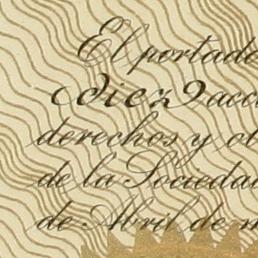 El portado
diez acc
derechos y ob
de la Sociedad
de Abril de m